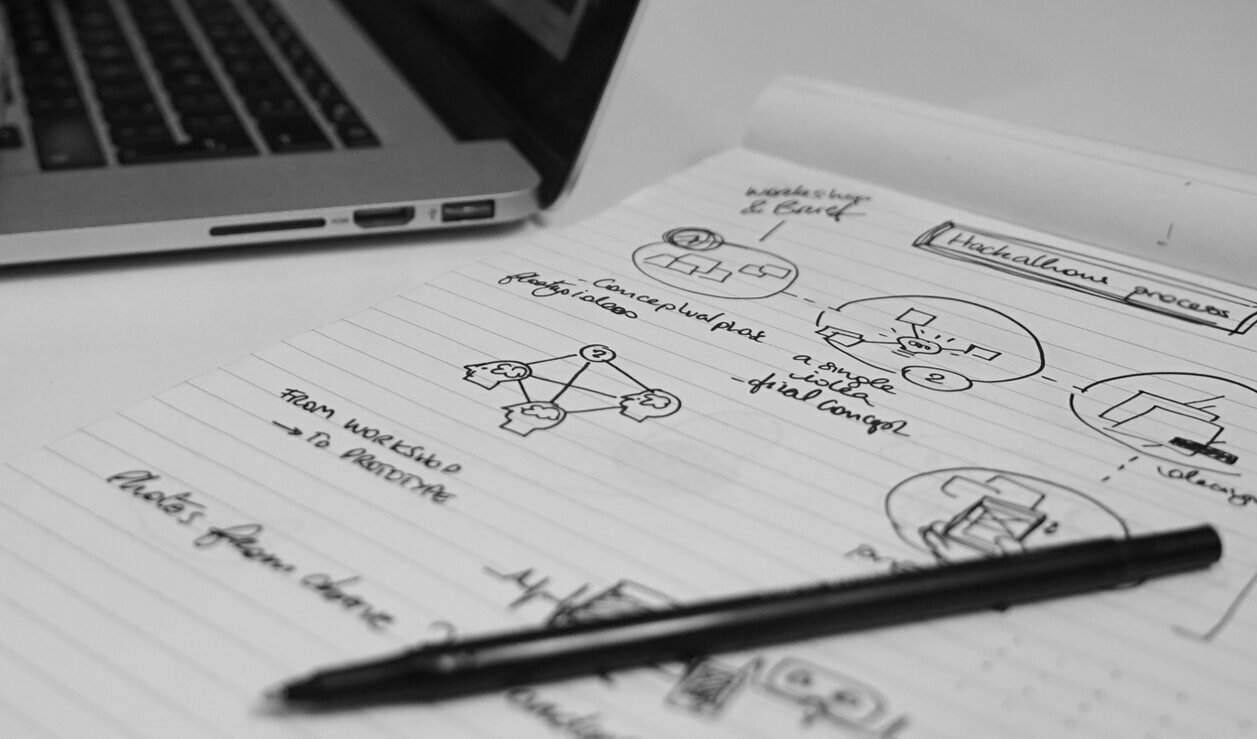 workshop
& Brief
Hackathone process
1
- Conceptual phase
floating ideas
2
a single
idea
- final concept
2
FROM WORKSHOP
→ TO PROTOTYPE
Photos from above